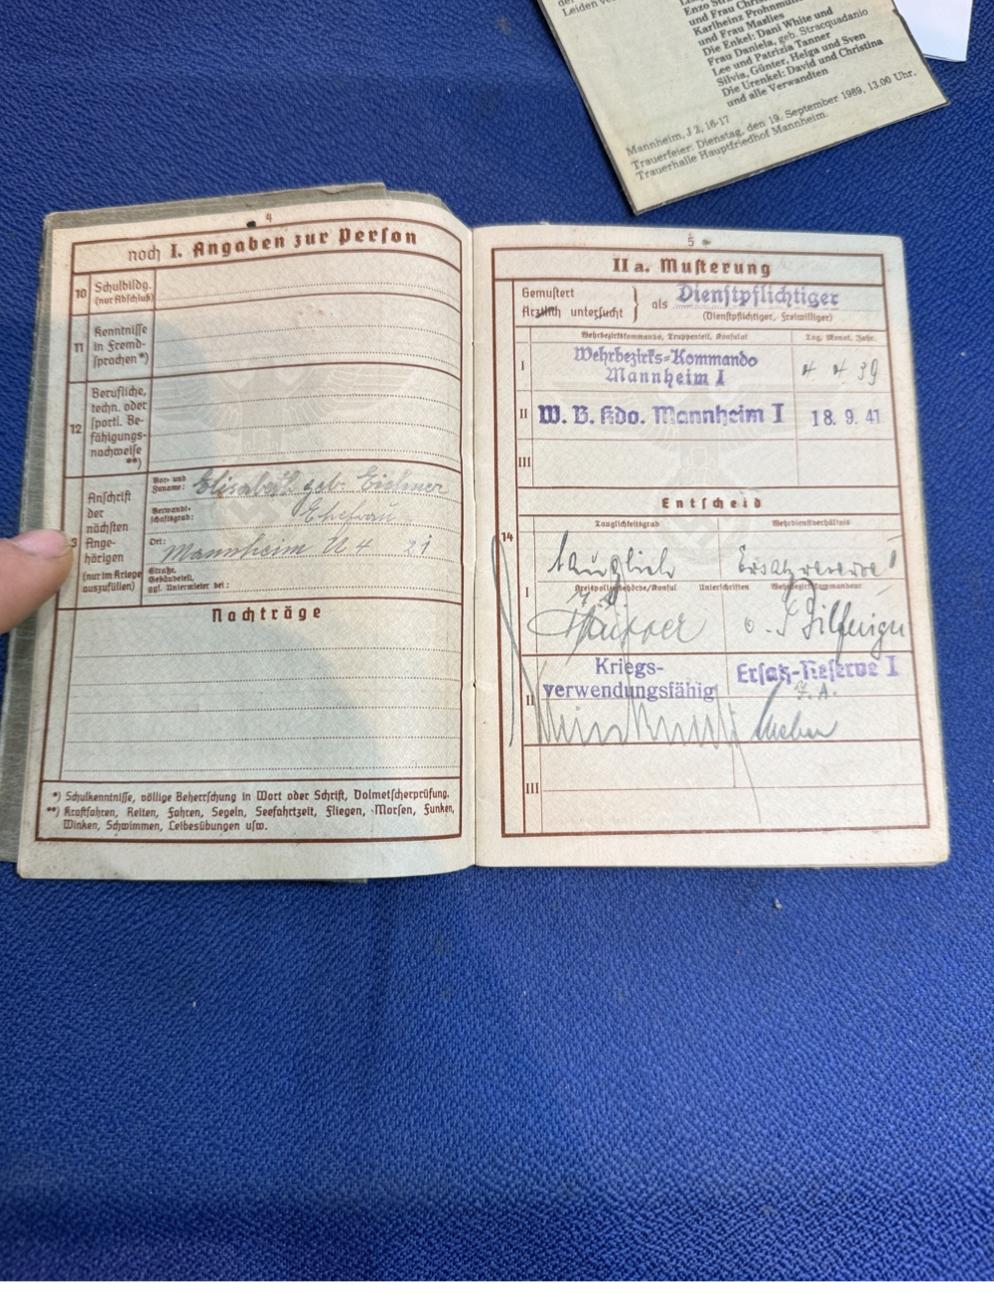 Leiden
Enzo
und Frau
Karlheinz
und Frau Maslies
Die Enkel: Dani White und
Frau Daniela, geb. Stracquadanio
Lee und Patrizia Tanner
Silvia, Günter, Helga und Sven
Die Urenkel: David und Christina
und alle Verwandten
Mannheim, J 2, 16-17
Trauerfeier: Dienstag, den 19. September 1989, 13.00 Uhr.
Trauerhalle Hauptfriedhof Mannheim.
4
noch I. Angaben zur Person
10 Schulbildg.
(nur Abschluß)
11 Kenntnisse
in Fremd-
sprachen*)
12 Berufliche,
techn. oder
sportl. Be-
fähigungs-
nachweise
**)
Anschrift
der
nächsten
Ange-
hörigen
(nur im Kriege
auszufüllen)
Vor- und
Zuname: Elisabeth geb. Eichner
Verwandt-
schaftsgrad: Ehefrau
Ort: Mannheim U 4 21
Straße,
Gebäudeteil,
ggf. Untermieter bei:
Nachträge
*) Schulkenntnisse, völlige Beherrschung in Wort oder Schrift, Dolmetscherprüfung.
**) Kraftfahren, Reiten, Fahren, Segeln, Seefahrtzeit, Fliegen, Morsen, Funken,
Winken, Schwimmen, Leibesübungen usw.
5
II a. Musterung
Gemustert
Ärztlich untersucht
als Dienstpflichtiger
(Dienstpflichtiger, Freiwilliger)
Wehrbezirkskommando, Truppenteil, Konsulat Tag, Monat, Jahr
I Wehrbezirks-Kommando
Mannheim I 4 4 39
II W. B. Kdo. Mannheim I 18. 9. 41
III
Entscheid
14
Tauglichkeitsgrad Wehrdienstverhältnis
I tauglich Ersatzreserve I
Kreispolizeibehörde/Konsul Unterschriften Wehrbezirkskommandeur
II Kriegs-
verwendungsfähig Ersatz-Reserve I
I. A.
Weber
III